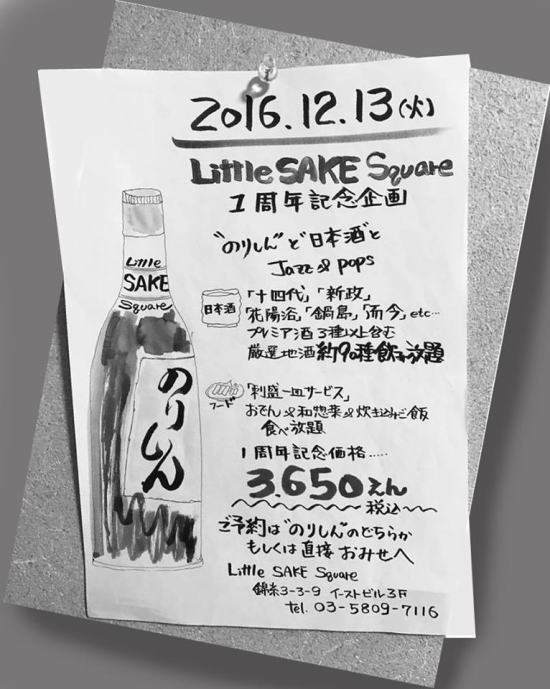 2016.12.13(火)
Little SAKE Square
1周年記念企画
"のりしん"と日本酒と
Jazz & pops
日本酒
「十四代」「新政」
「花陽浴」「鍋島」「而今」etc…
プレミア酒3種以上含む
厳選地酒約90種飲み放題
フード
「刺盛一皿サービス」
おでん&和惣菜&炊き込みご飯
食べ放題
1周年記念価格.....
3.650えん
税込
ご予約は"のりしん"のどちらか
もしくは直接おみせへ
Little SAKE Square
錦糸3-3-9 イーストビル3F
tel. 03-5809-7116
Little
SAKE
Square
のりしん